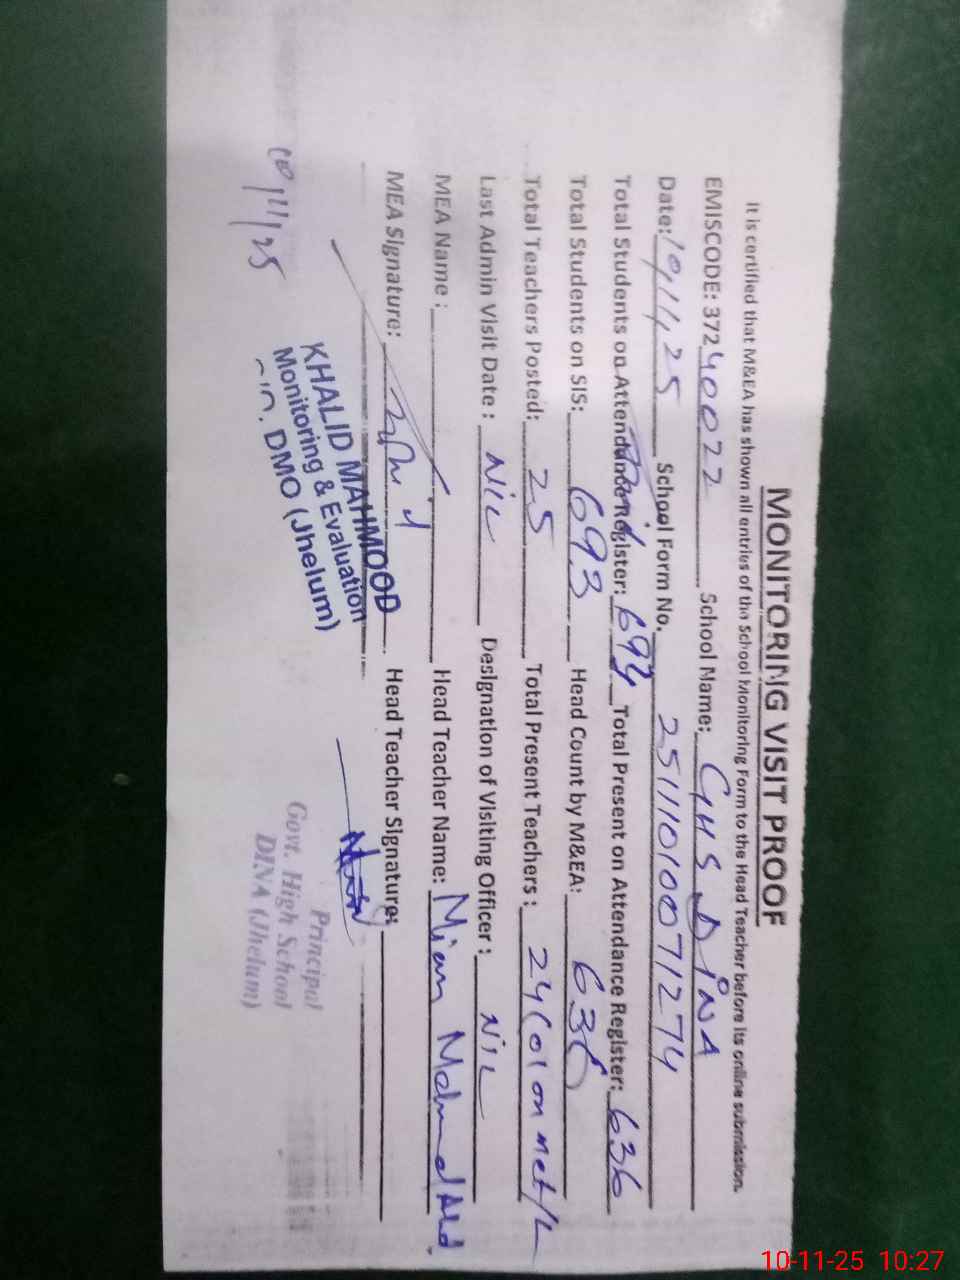 MONITORING VISIT PROOF
It is certified that M&EA has shown all entries of the School Monitoring Form to the Head Teacher before its online submission.
EMISCODE: 37240022 School Name: GHS DINA
Date: 10/11/25 School Form No. 25111010071274
Total Students on Attendance Register: 693 Total Present on Attendance Register: 636
Total Students on SIS: 693 Head Count by M&EA: 636
Total Teachers Posted: 25 Total Present Teachers: 24 (01 on
Last Admin Visit Date: NIL Designation of Visiting Officer: NIL
MEA Name: Head Teacher Name: Mian
MEA Signature: Head Teacher Signature:
KHALID MAHMOOD
Monitoring & Evaluation
DMO (Jhelum)
10/11/25
Principal
Govt. High School
DINA (Jhelum)
10-11-25 10:27